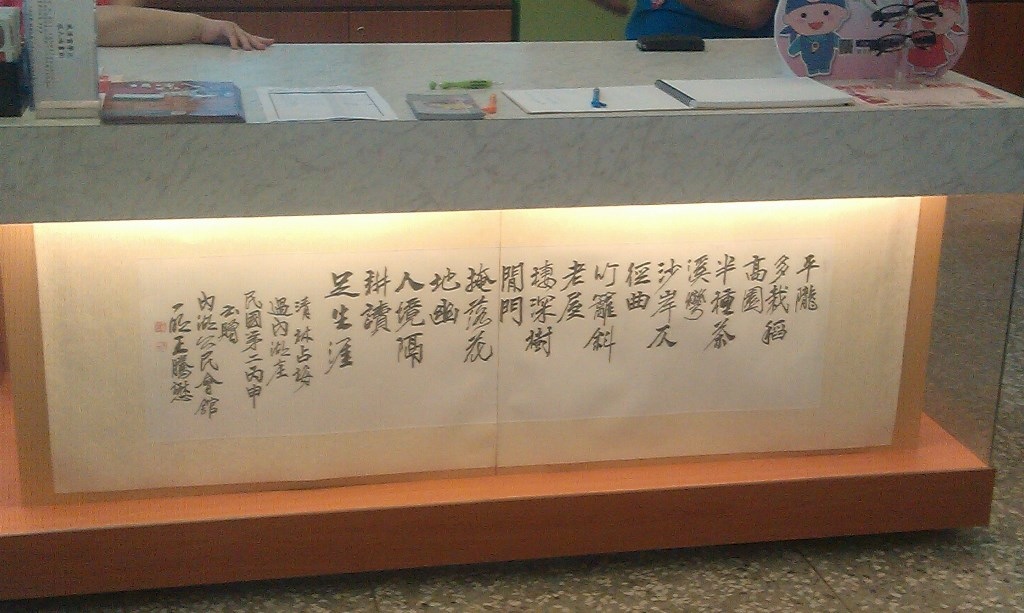 平隴
多栽稻
高園
半種茶
溪彎
沙岸仄
徑曲
竹籬斜
老屋
深樹
閒門
掩落花
地幽
人境隔
耕讀
足生涯
清林占梅
過內湖庄
民國第二丙申
書贈
內湖公民會館
王